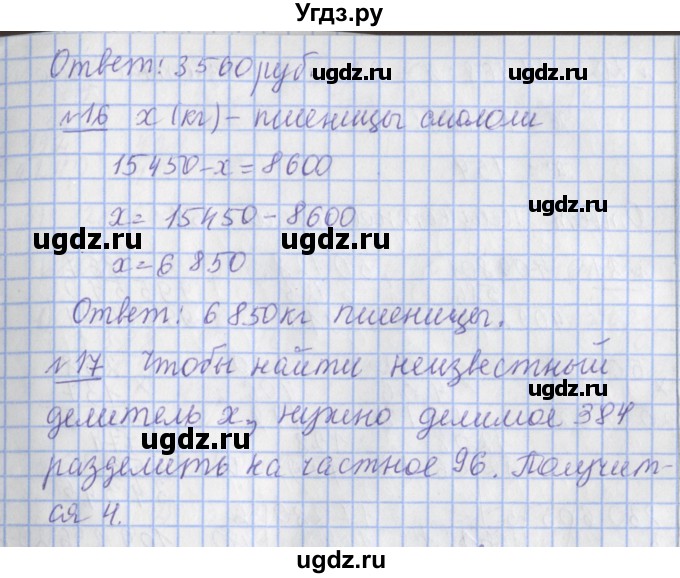 Угдз.ру
Ответ: 3560 руб.
ugdz.ru
№16 х (кг) – пшеницы смололи
ugdz.ru
15450 – х = 8600
ugdz.ru
х = 15450 – 8600
ugdz.ru ugdz.ru
х = 6 850
Ответ: 6 850 кг пшеницы.
ugdz.ru
№17 Чтобы найти неизвестный
ugdz.ru
делитель х, нужно делимое 384
ugdz.ru
разделить на частное 96. Получит-
ся 4.
ugdz.ru
ugdz.ru